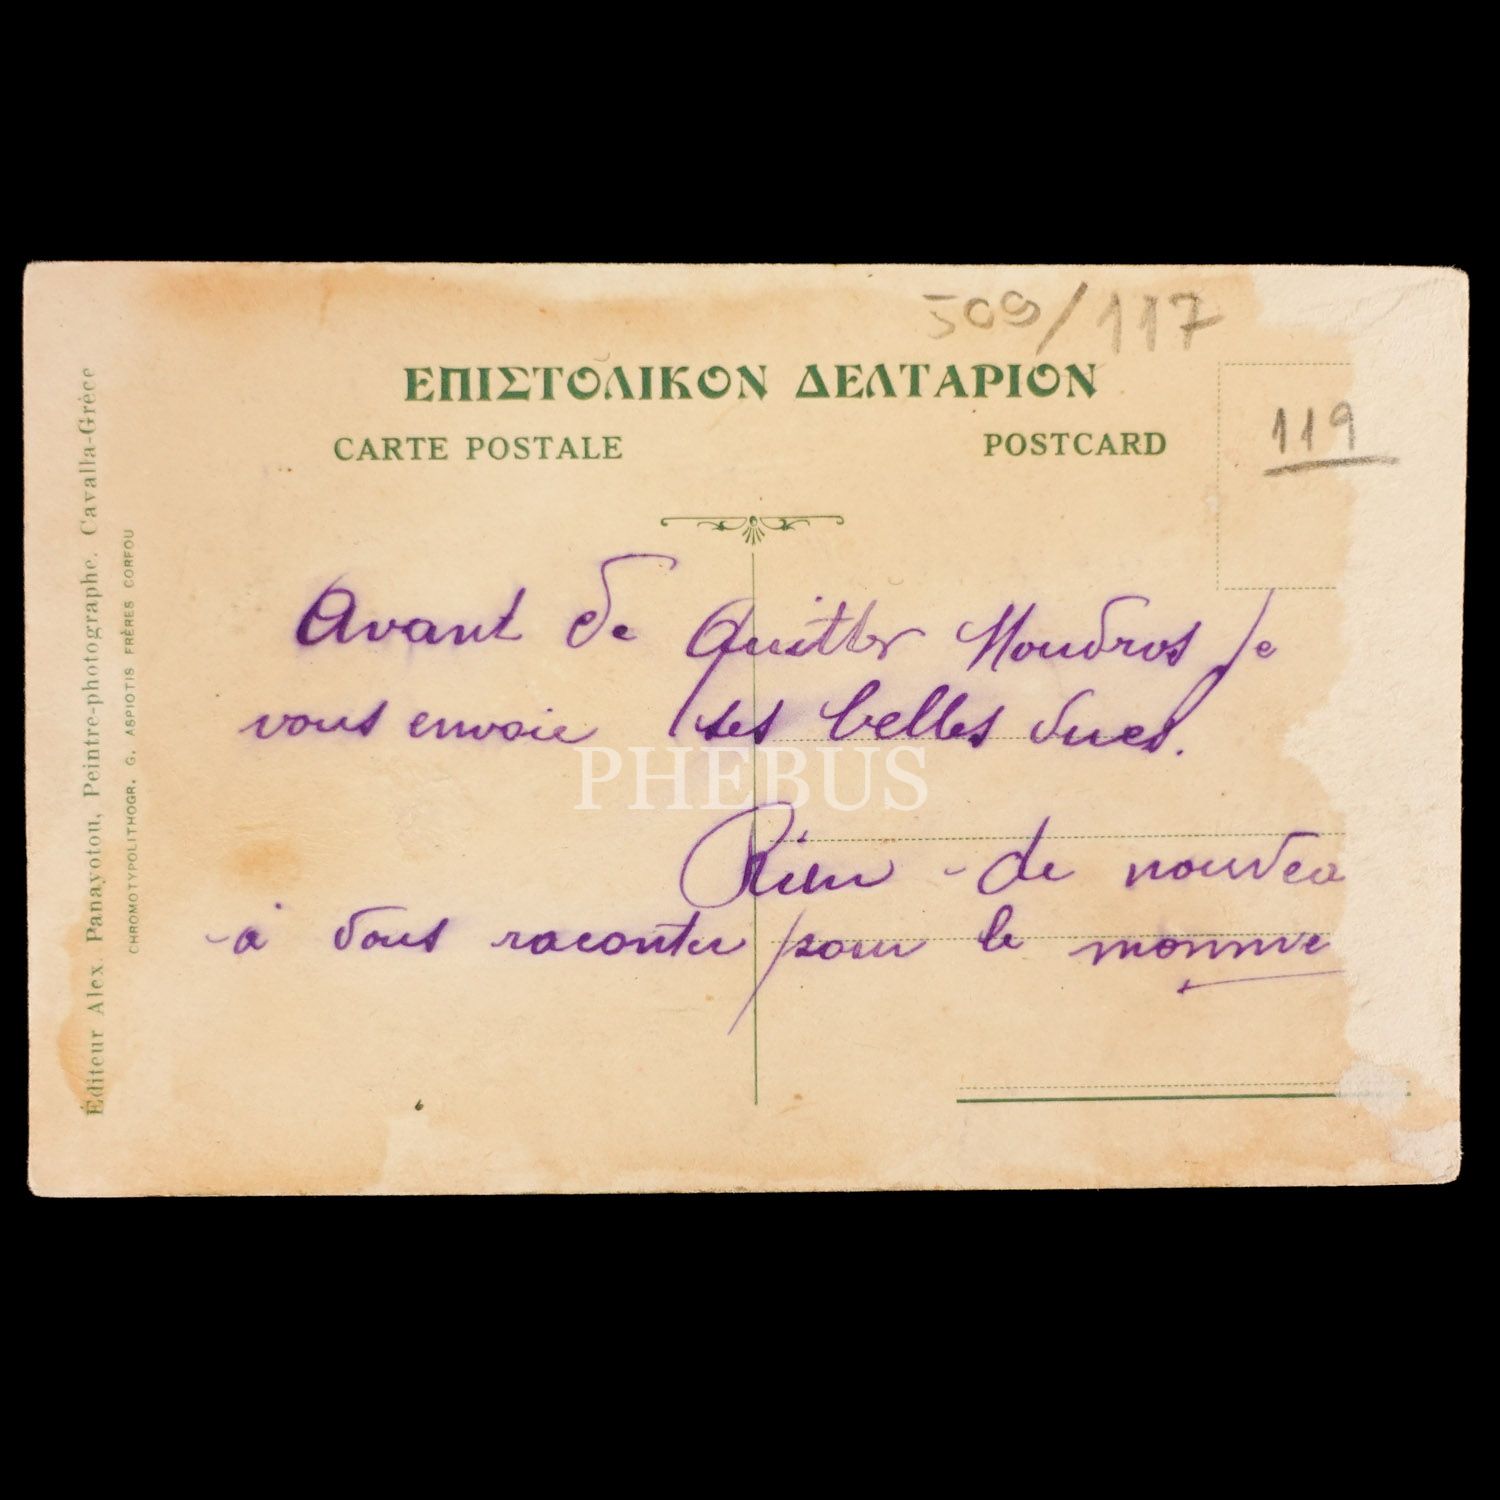 509/117
ΕΠΙΣΤΟΛΙΚΟΝ ΔΕΛΤΑΡΙΟΝ
CARTE POSTALE
POSTCARD
119
Avant de Quitter Moudros je
vous envoie ses belles vues.
Rien de nouvea
à vous raconter pour le momme
Éditeur Alex. Panayotou, Peintre-photographe. Cavalla-Grèce
CHROMOTYPOLITHOGR. G. ASPIOTIS FRÈRES CORFOU
PHEBUS